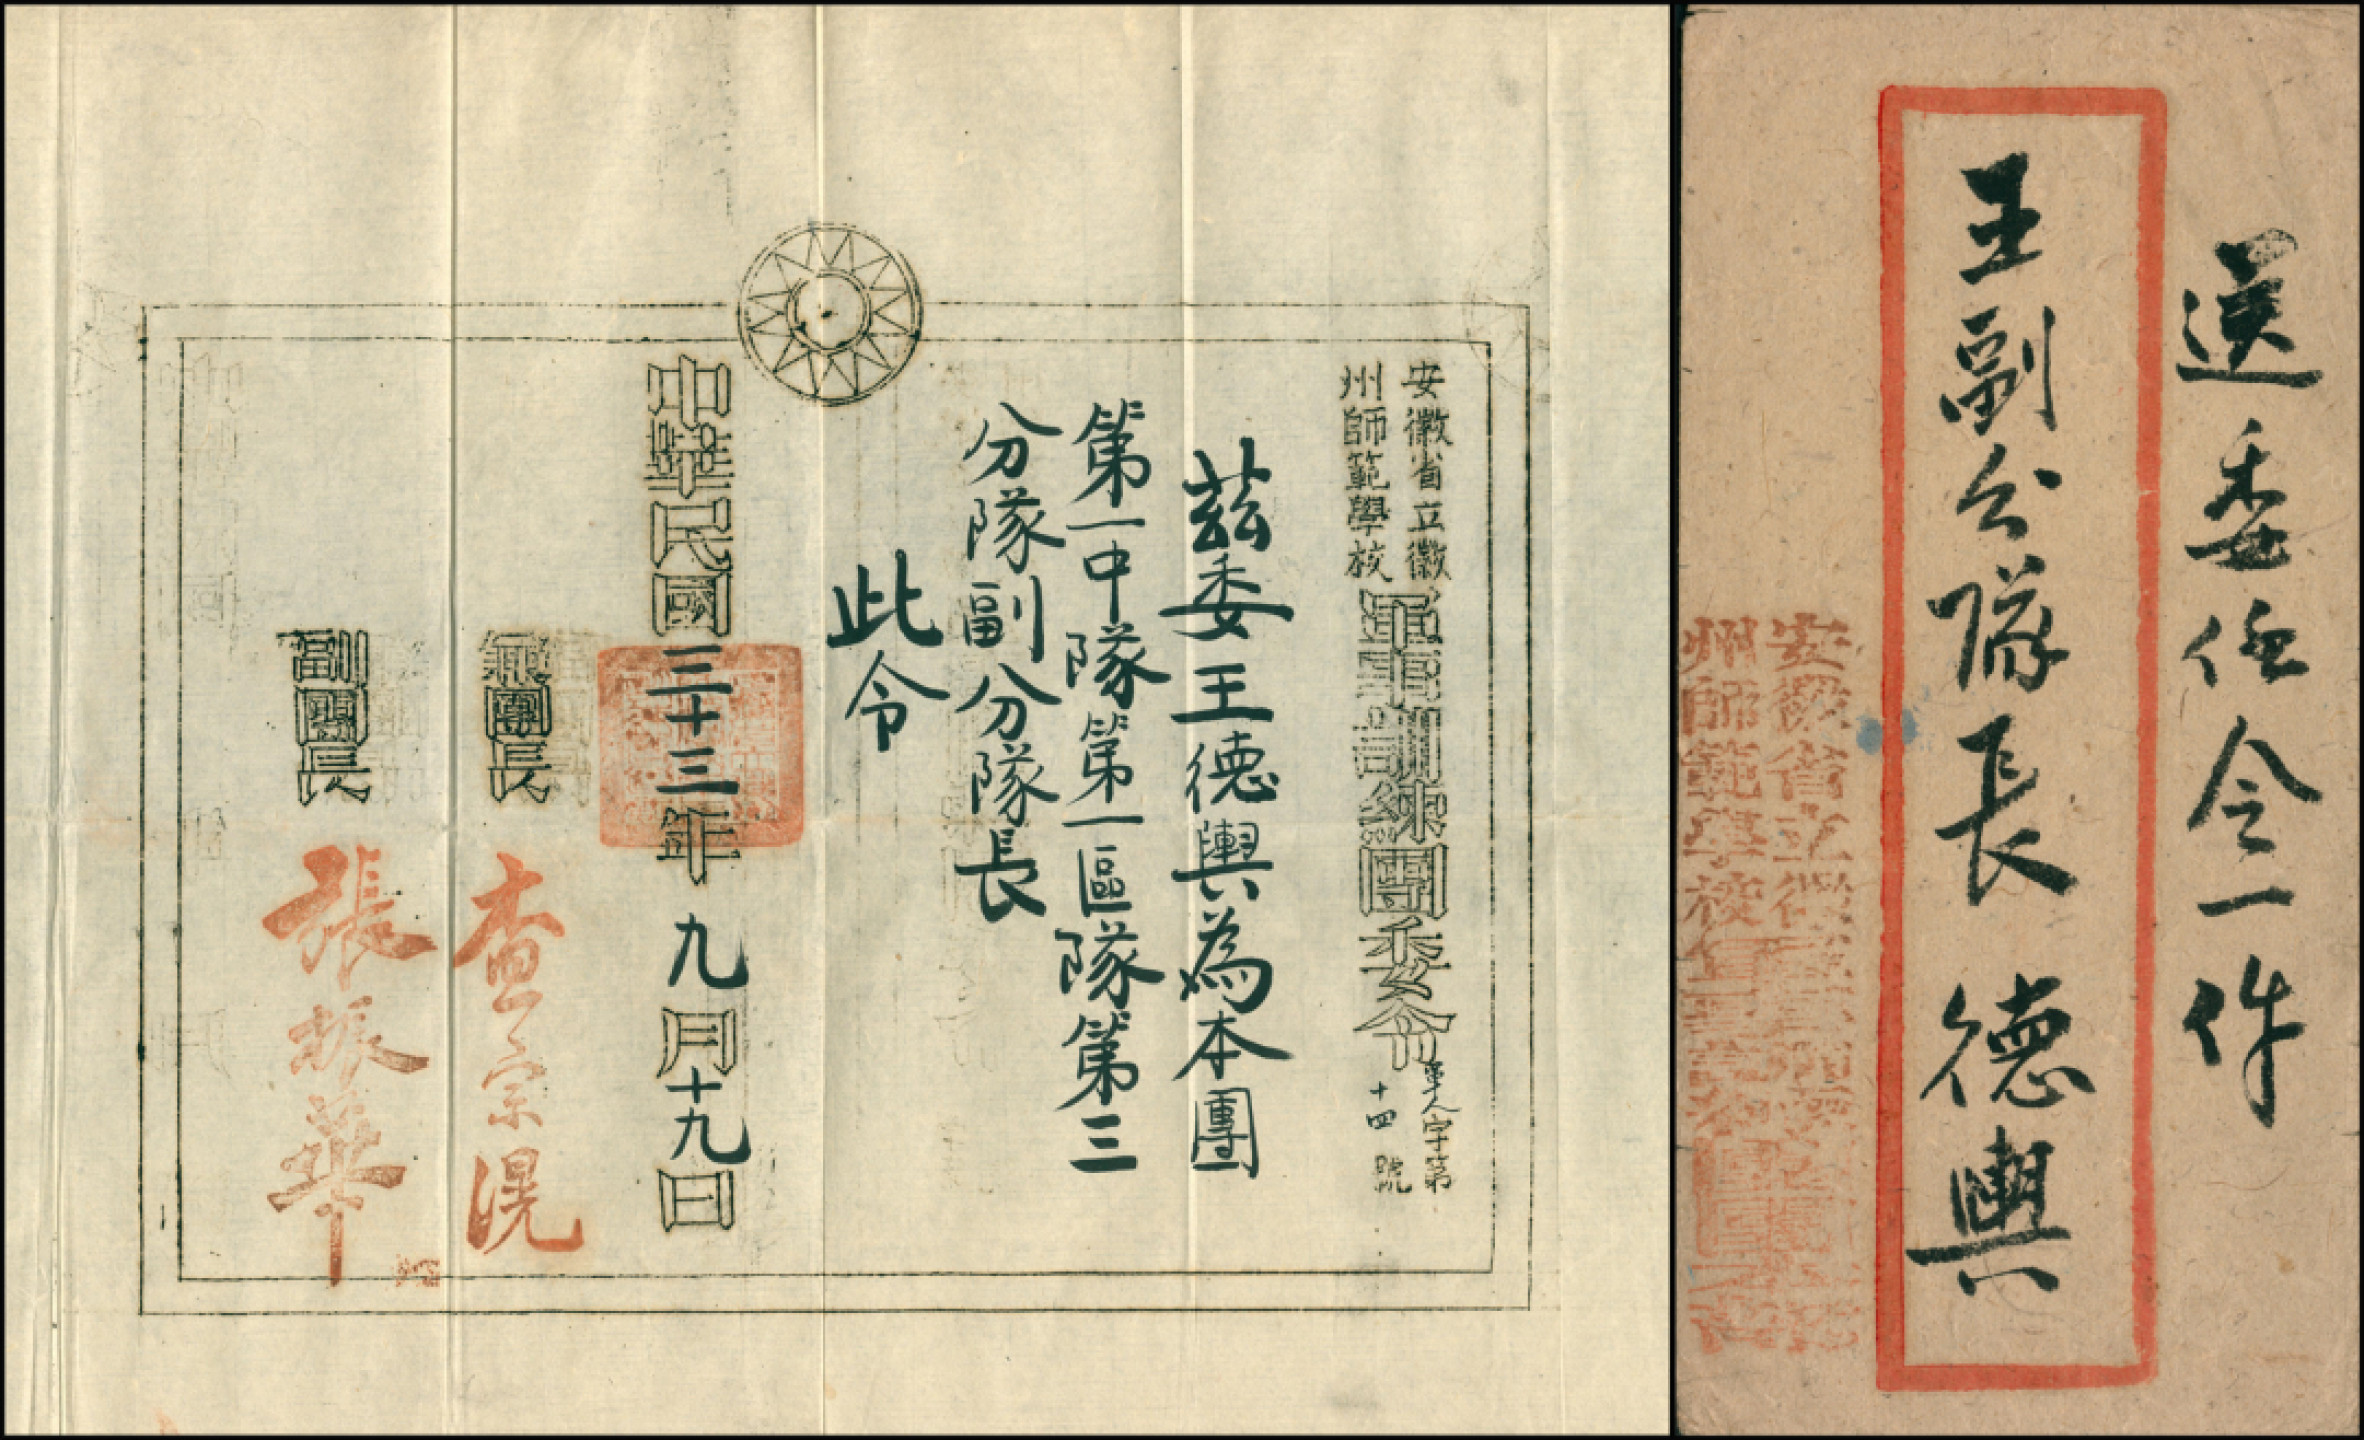 安徽省立徽
州師範學校
軍事訓練團委令
軍人字第
十四 號
茲委王德輿為本團
第一中隊第一區隊第三
分隊副分隊長
此令
中華民國三十三年九月十九日
兼團長 查宗滉
副團長 張振華
送委任令一件
王副分隊長 德輿
安徽省立徽
州師範學校